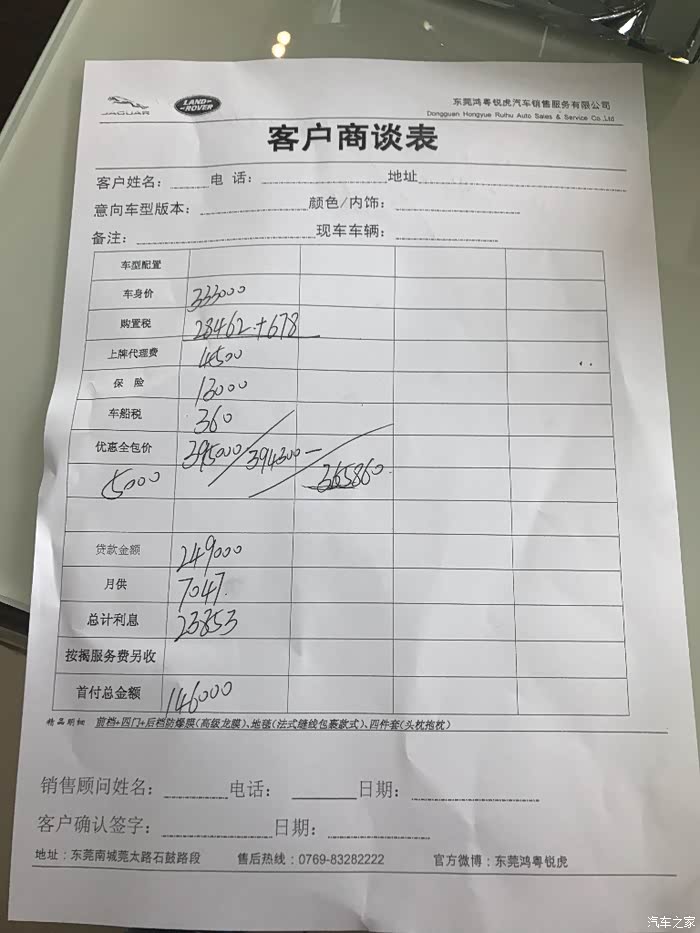 JAGUAR
LAND-
-ROVER
东莞鸿粤锐虎汽车销售服务有限公司
Dongguan Hongyue Ruihu Auto Sales & Service Co.,Ltd
客户商谈表
客户姓名: 电 话: 地址
意向车型版本: 颜色/内饰:
备注: 现车车辆:
车型配置
车身价 333000
购置税 28462+678
上牌代理费 4500
保 险 13000
车船税 360
优惠全包价 395000/394300-
5000 365860
贷款金额 249000
月供 7047.
总计利息 23853
按揭服务费另收
首付总金额 146000
精品明细 前档+四门+后档防爆膜(高级龙膜)、地毯(法式缝线包裹款式)、四件套(头枕抱枕)
销售顾问姓名: 电话: 日期:
客户确认签字: 日期:
地址:东莞南城莞太路石鼓路段 售后热线:0769-83282222 官方微博:东莞鸿粤锐虎
汽车之家